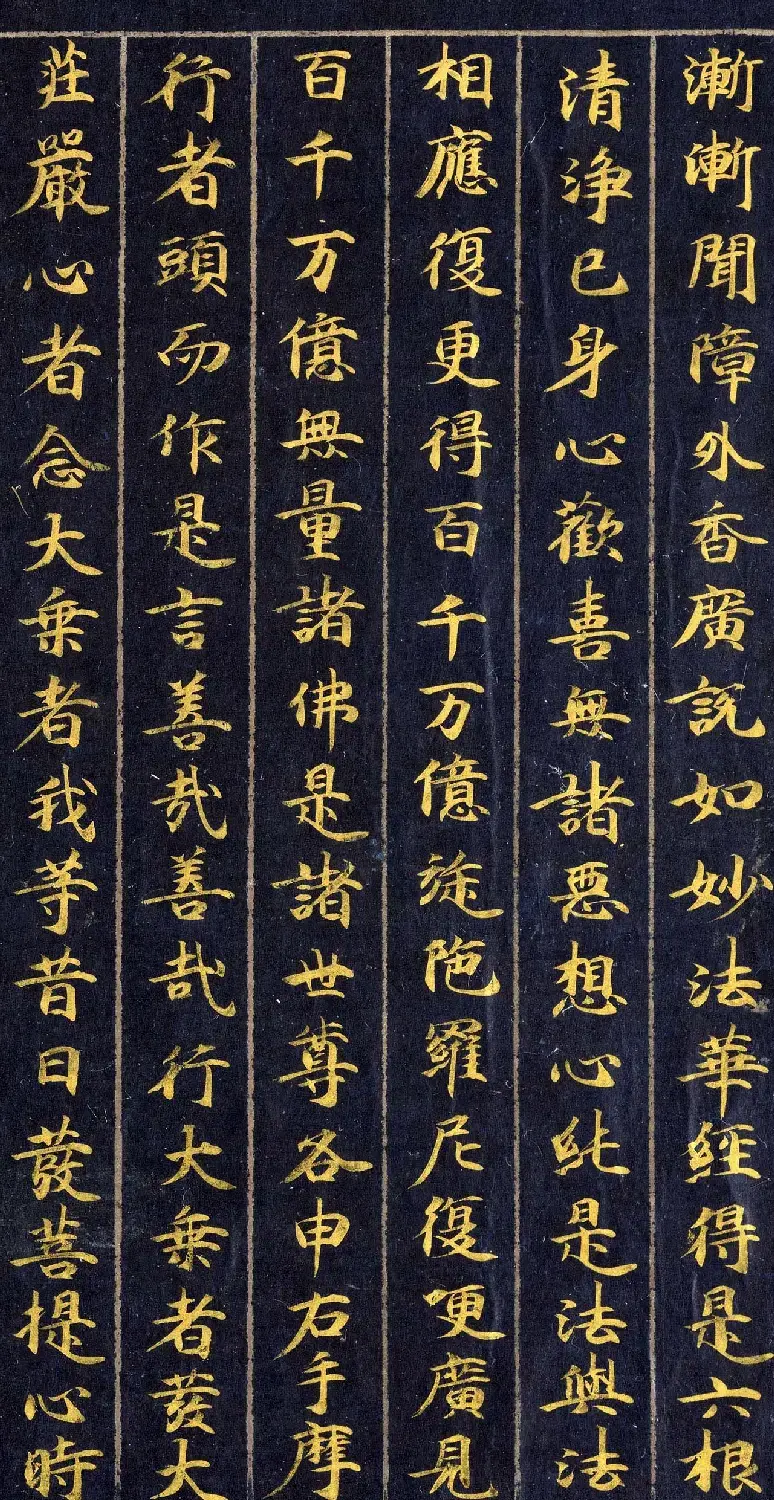 漸漸聞障外香廣說如妙法華經得是六根
清淨已身心歡喜無諸惡想心純是法與法
相應復更得百千万億旋陁羅尼復更廣見
百千万億無量諸佛是諸世尊各申右手摩
行者頭而作是言善哉善哉行大乘者發大
莊嚴心者念大乘者我等昔日發菩提心時